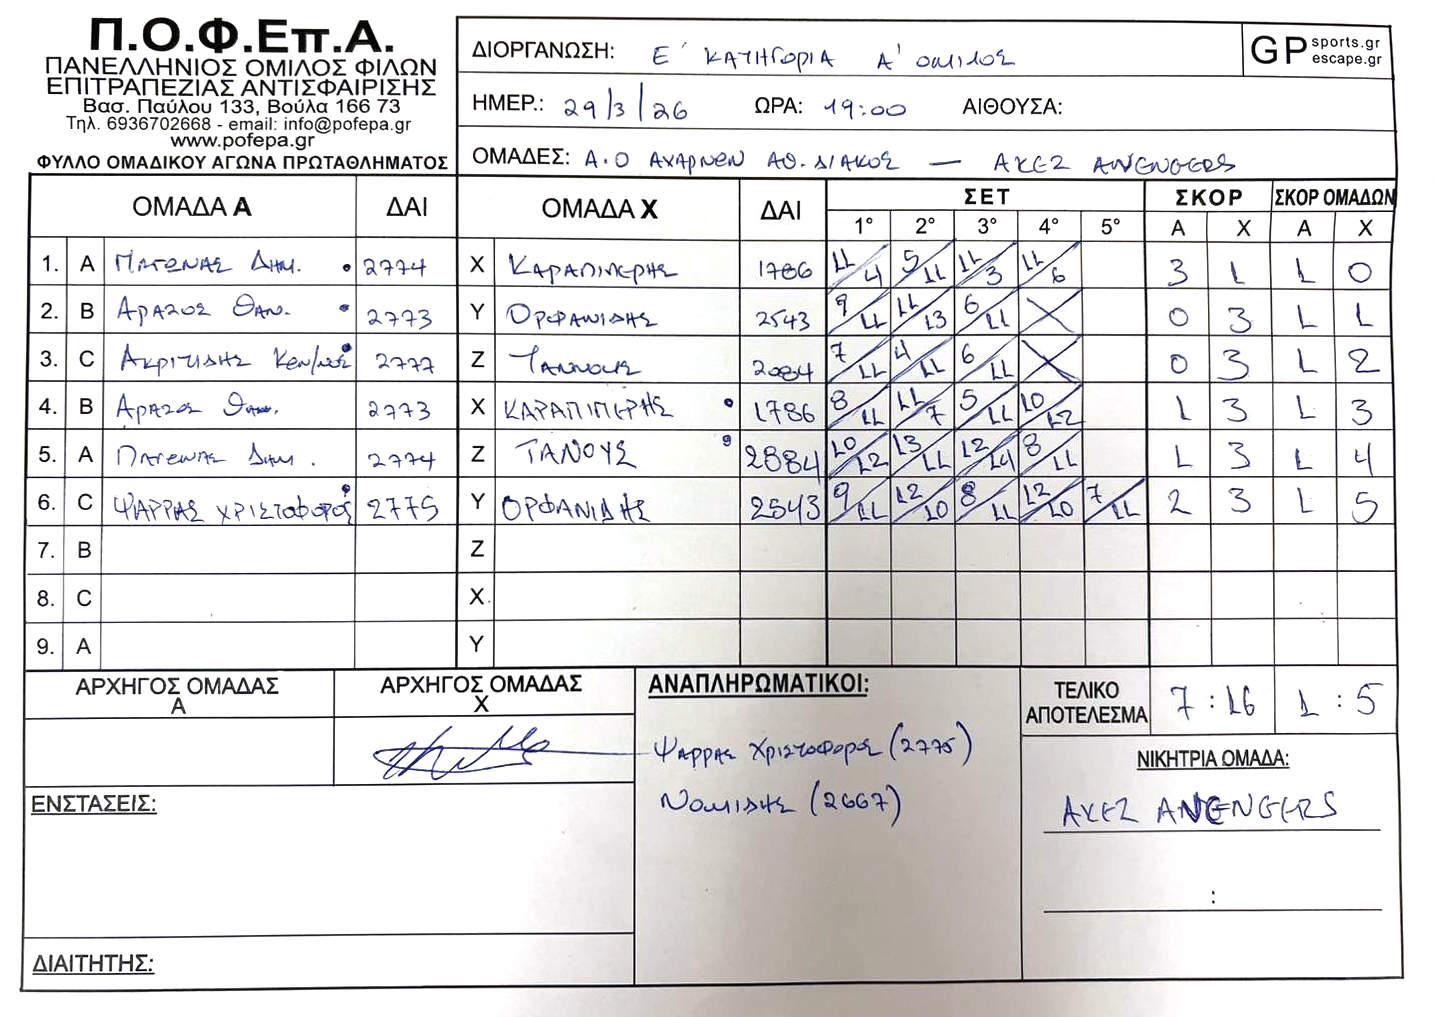 Π.Ο.Φ.Επ.Α.
ΠΑΝΕΛΛΗΝΙΟΣ ΟΜΙΛΟΣ ΦΙΛΩΝ
ΕΠΙΤΡΑΠΕΖΙΑΣ ΑΝΤΙΣΦΑΙΡΙΣΗΣ
Βασ. Παύλου 133, Βούλα 166 73
Τηλ. 6936702668 - email: info@pofepa.gr
www.pofepa.gr
ΦΥΛΛΟ ΟΜΑΔΙΚΟΥ ΑΓΩΝΑ ΠΡΩΤΑΘΛΗΜΑΤΟΣ
ΔΙΟΡΓΑΝΩΣΗ: Ε΄ ΚΑΤΗΓΟΡΙΑ Α' ΟΜΙΛΟΣ
GP sports.gr escape.gr
ΗΜΕΡ.: 29/3/26 ΩΡΑ: 19:00 ΑΙΘΟΥΣΑ:
ΟΜΑΔΕΣ: Α.Ο ΑΧΑΡΝΩΝ ΑΘ. ΔΙΑΚΟΣ — ΑΧΕΖ ΑVENGERS
ΟΜΑΔΑ Α ΔΑΙ ΟΜΑΔΑ Χ ΔΑΙ ΣΕΤ ΣΚΟΡ ΣΚΟΡ ΟΜΑΔΩΝ
1° 2° 3° 4° 5° Α Χ Α Χ
1. A ΠΑΓΩΝΑΣ ΔΗΜ. 2774 X ΚΑΡΑΠΙΠΕΡΗΣ 1786 11/4 5/11 11/3 11/6 3 1 1 0
2. B ΑΡΑΖΟΣ ΘΑΝ. 2773 Y ΟΡΦΑΝΙΔΗΣ 2543 9/11 11/13 6/11 0 3 1 1
3. C ΑΚΡΙΤΙΔΗΣ ΚΩΝ/ΝΟΣ 2777 Z ΤΑΝΝΟΥΣ 2084 7/11 4/11 6/11 0 3 1 2
4. B ΑΡΑΖΟΣ ΘΑΝ. 2773 X ΚΑΡΑΠΙΠΕΡΗΣ 1786 8/11 11/7 5/11 10/12 1 3 1 3
5. A ΠΑΓΩΝΑΣ ΔΗΜ. 2774 Z ΤΑΝΟΥΣ 2884 10/12 13/11 12/14 8/11 1 3 1 4
6. C ΨΑΡΡΑΣ ΧΡΙΣΤΟΦΟΡΟΣ 2775 Y ΟΡΦΑΝΙΔΗΣ 2543 9/11 12/10 8/11 12/10 7/11 2 3 1 5
7. B Z
8. C X
9. A Y
ΑΡΧΗΓΟΣ ΟΜΑΔΑΣ Α
ΑΡΧΗΓΟΣ ΟΜΑΔΑΣ Χ
ΑΝΑΠΛΗΡΩΜΑΤΙΚΟΙ:
ΨΑΡΡΑΣ ΧΡΙΣΤΟΦΟΡΟΣ (2775)
ΝΟΜΙΔΗΣ (2667)
ΤΕΛΙΚΟ ΑΠΟΤΕΛΕΣΜΑ 7 : 16 1 : 5
ΝΙΚΗΤΡΙΑ ΟΜΑΔΑ:
ΑΧΕΖ AVENGERS
:
ΕΝΣΤΑΣΕΙΣ:
ΔΙΑΙΤΗΤΗΣ: